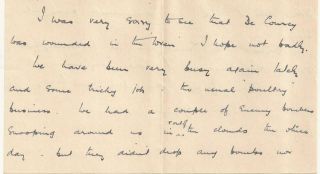 I was very sorry to see that De Courcy
was wounded in the. I hope not badly.
We have been very busy again lately
and some tricky jobs the usual poultry
business. We had a couple of Enemy bombers
snooping around us in the clouds the other
day - but they didn't drop any bombs